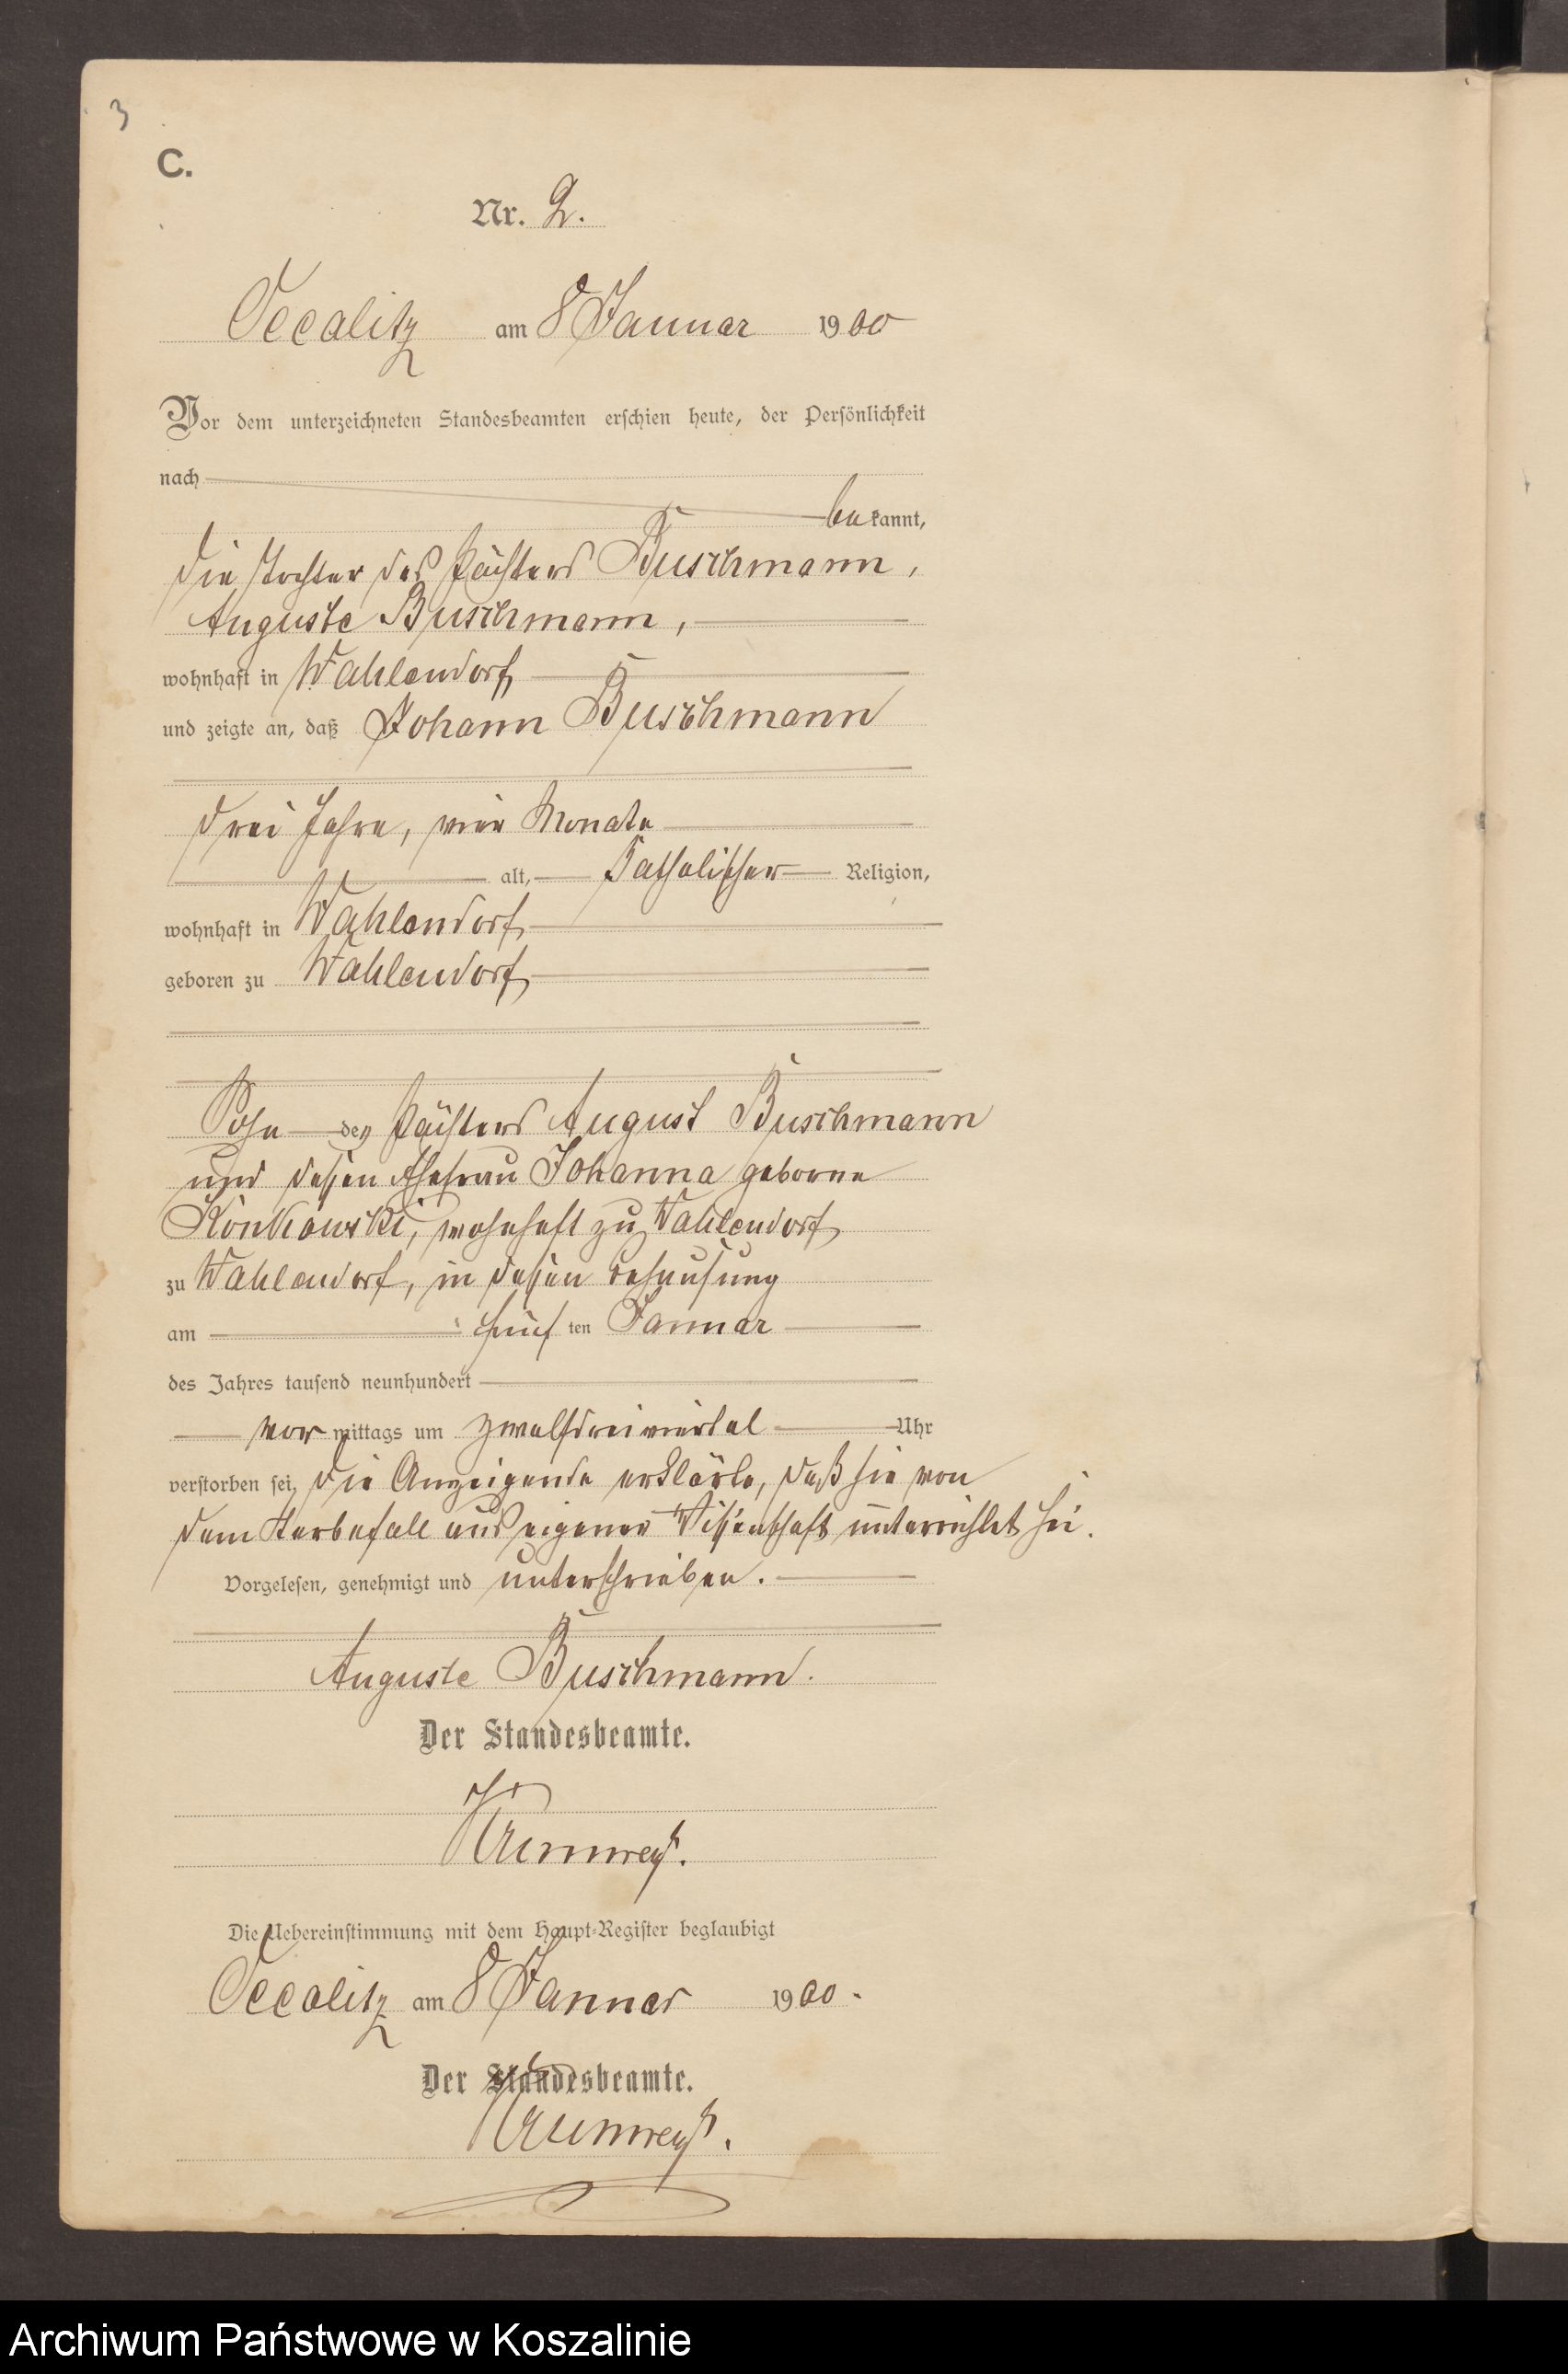 3
C.
Nr. 2.
Occalitz am 8 Januar 1900
Vor dem unterzeichneten Standesbeamten erschien heute, der Persönlichkeit
nach
bekannt,
die Tochter des Pächters Buschmann,
Auguste Buschmann,
wohnhaft in Wahlendorf
und zeigte an, daß Johann Buschmann
drei Jahre, vier Monate
alt, Katholischer Religion,
wohnhaft in Wahlendorf
geboren zu Wahlendorf
Sohn des Pächters August Buschmann
und dessen Ehefrau Johanna geborne
Konkowski, wohnhaft zu Wahlendorf
zu Wahlendorf, in dessen Behausung
am fünf ten Januar
des Jahres tausend neunhundert
vor mittags um zwölfdreiviertel Uhr
verstorben sei, die Anzeigende erklärte, daß sie von
dem Sterbefall aus eigener Wissenschaft unterrichtet sei.
Vorgelesen, genehmigt und unterschrieben.
Auguste Buschmann.
Der Standesbeamte.
Die Uebereinstimmung mit dem Haupt-Register beglaubigt
Occalitz am 8 Januar 1900.
Der Standesbeamte.
Archiwum Państwowe w Koszalinie